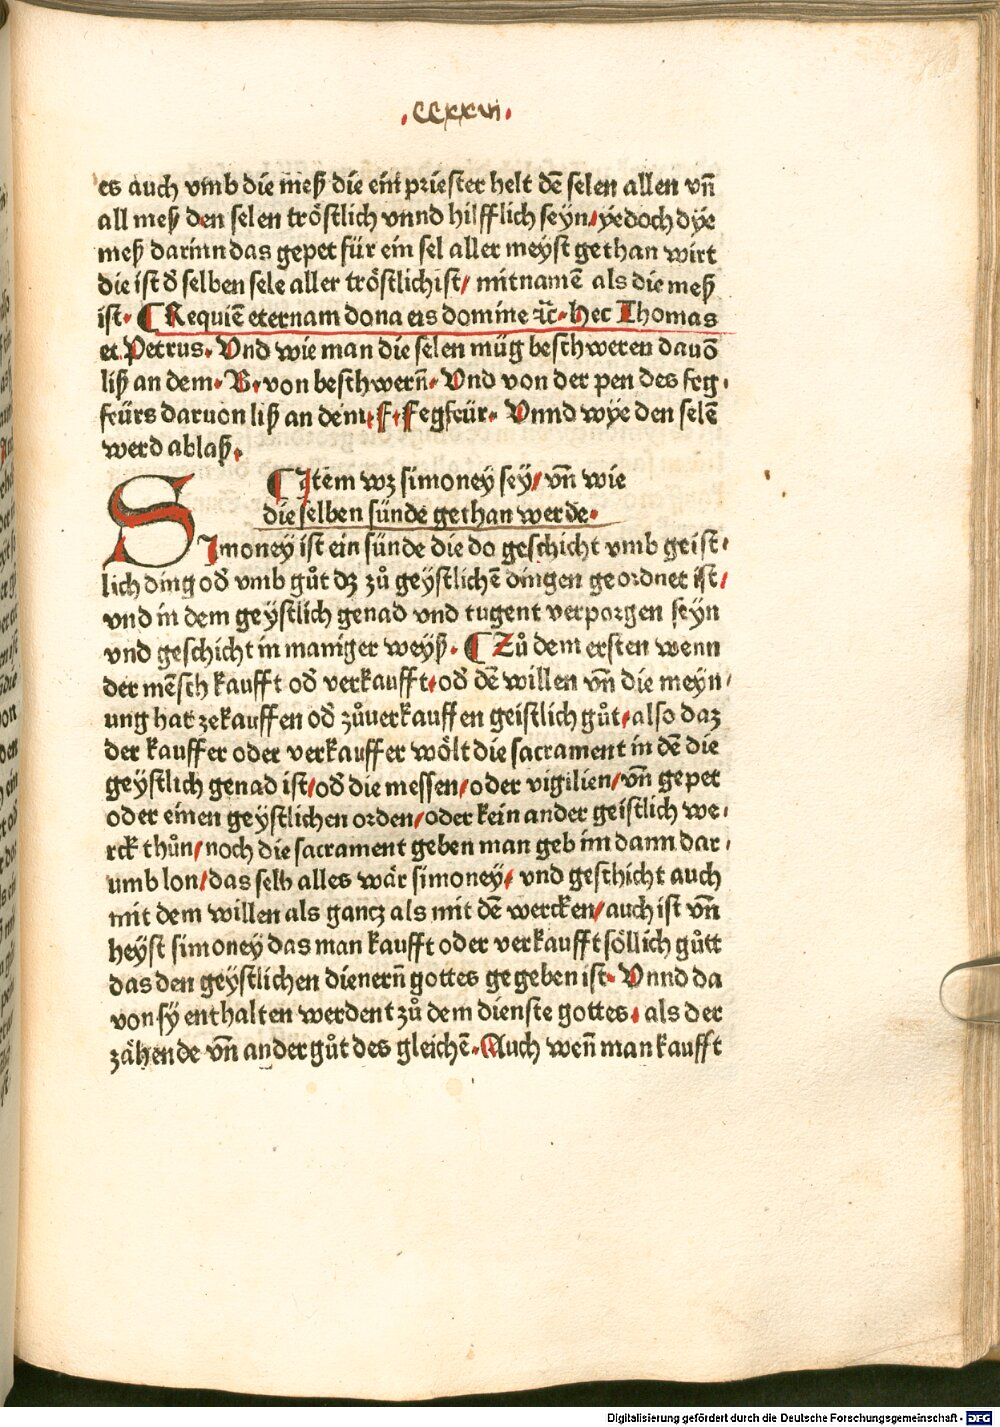 .ccxxvi.
es auch vmb die meß die ein priester helt dē selen allen vñ
all meß den selen tröstlich vnnd hilfflich seyn/yedoch dye
meß darinn das gepet für ein sel aller meyst gethan wirt
die ist d̕ selben sele aller tröstlichist/ mitnamē als die meß
ist. ¶ Requiē eternam dona eis domine ⁊c̄. Hec Thomas
et Petrus. Vnd wie man die selen müg beschweren dauō
liß an dem. B. von beschwerñ. Vnd von der pen des feg⸗
feürs daruon liß an dem. F. Fegfeür. Vnnd wye den selē
werd ablaß.
¶ Item wz simoney sey/ vñ wie
die selben sünde gethan werde.
SImoney ist ein sünde die do geschicht vmb geist⸗
lich ding od̕ vmb gůt dz zů geystlichē dingen geordnet ist/
vnd in dem geystlich genad vnd tugent verporgen seyn
vnd geschicht in maniger weyß. ¶ Zů dem ersten wenn
der mēsch kaufft od̕ verkaufft/od̕ dē willen vñ die meyn⸗
ung hat zekauffen od̕ zůuerkauffen geistlich gůt/also daz
der kauffer oder verkauffer wölt die sacrament in dē die
geystlich genad ist/od̕ die messen/oder vigilien/vñ gepet
oder einen geystlichen orden/oder kein ander geistlich we⸗
rck thůn/noch die sacrament geben man geb im dann dar⸗
umb lon/das selb alles wär simoney/ vnd geschicht auch
mit dem willen als gancz als mit dē wercken/auch ist vñ
heyst simoney das man kaufft oder verkaufft söllich gůtt
das den geystlichen dienerñ gottes gegeben ist. Vnnd da
von sy enthalten werdent zů dem dienste gottes. als der
zähende vñ ander gůt des gleichē. Auch weñ man kaufft
Digitalisierung gefördert durch die Deutsche Forschungsgemeinschaft - DFG